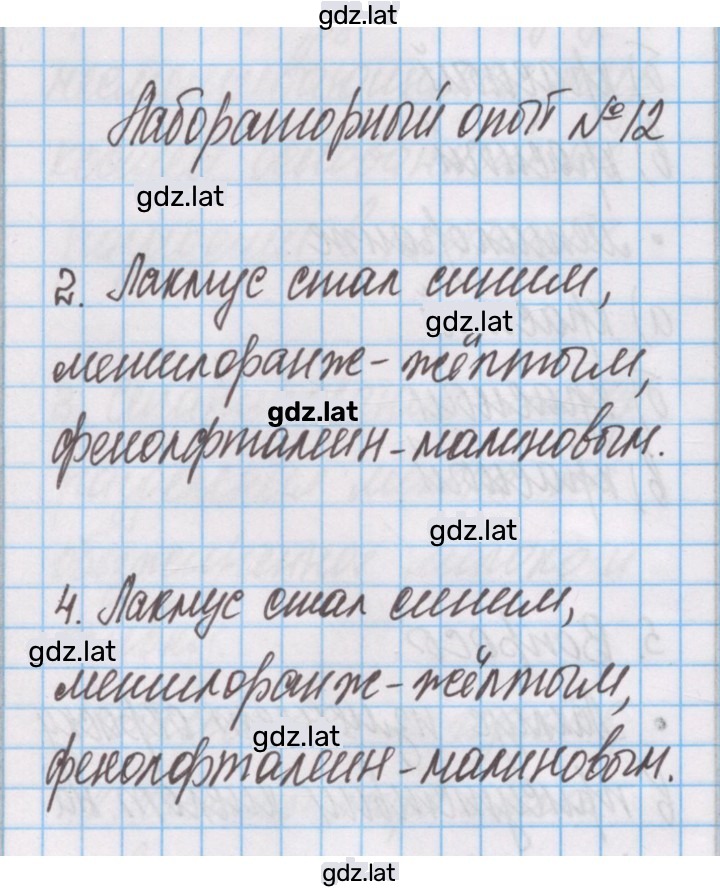 gdz.lat
Лабораторный опыт №12
gdz.lat
2. Лакмус стал синим,
gdz.lat
метилоранж - жёлтым,
gdz.lat
фенолфталеин - малиновым.
gdz.lat
4. Лакмус стал синим,
gdz.lat
метилоранж - жёлтым,
gdz.lat
фенолфталеин - малиновым.
gdz.lat